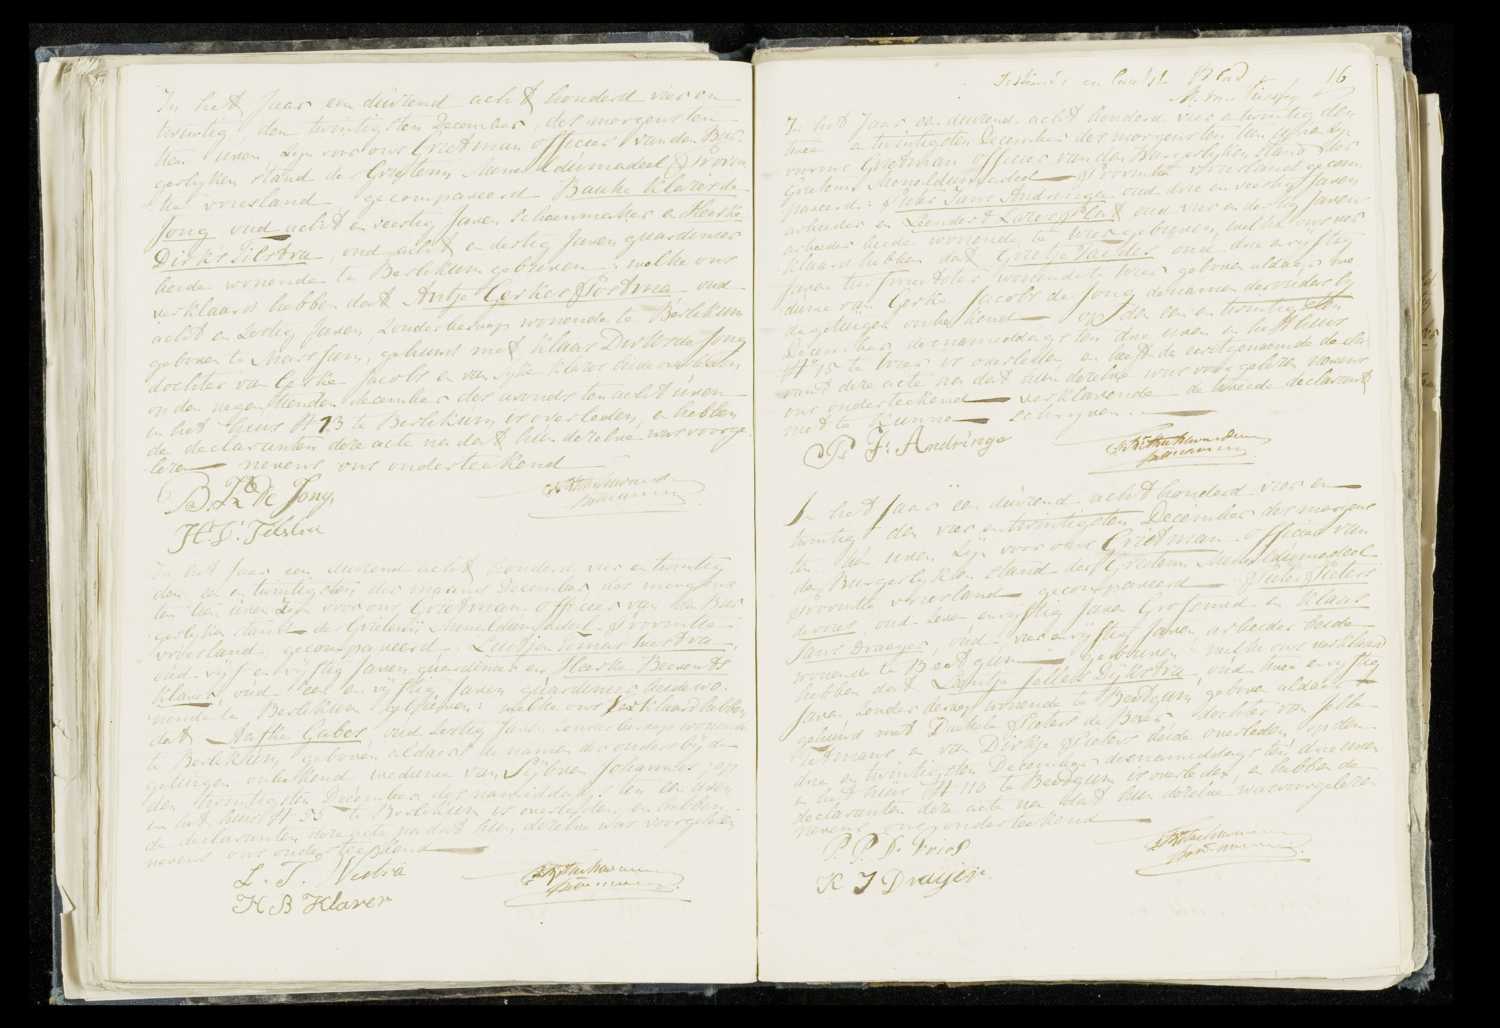 In het Jaar een duizend acht honderd vier en
twintig den twintigsten December, des morgens ten
tien uren, Zijn voor ons Grietman officier van den Bur-
gerlijken stand der Grietenij Menaldumadeel Provin-
tie vriesland gecompareerd Bauke Klazes de
Jong oud acht en veertig Jaren schoenmaker en Heerke
Dirks Tilstra, oud acht en dertig Jaren guardenier
beide wonende te Berlikum gebreven: welke ons
verklaard hebben dat Antje Gerkes Postma oud
acht en Zestig Jaren, Zonder beroep wonende te Berlikum
geboren te Marssum, gehuwd met Klaas Dirks de Jong
dochter van Gerke Jacobs en van Sijke Klazes beide overleden
op den negentienden december des avonds ten acht uren
in het huis N 73 te Berlikum is overleden, en hebben
de declaranten deze acte na dat hun dezelve was voorge
lezen nevens ons onderteekend
B. K. De Jong,
H: D: Tilstra
In het Jaar een duizend acht honderd vier en twintig
den een en twintigsten der maand December des morgens
ten tien uren Zijn voor ons Grietman officier van den Bur
gerlijken stand der Grietenij Menaldumadeel Provintie
vriesland gecompareerd Tomas
oud vijf en vijftig Jaren guardenier en Heerke Beerents
Klaver oud een en vijftig Jaren guardenier beide wo-
nende te Berlikum gebreven: welke ons verklaard hebben
dat Aafke Gabes, oud Zestig Jaren Zonder beroep wonende
te Berlikum, geboren aldaar de namen der ouders bij de
getuigen onbekend weduwe van Sijbren Johannes, op
den twintigsten December des namiddags ten een uren
in het huis N 55 te Berlikum is overleden, en hebben
de declaranten deze acte na dat hun dezelve was voorgelezen
nevens ons onderteekend
L. T.
H B Klaver
16
In het Jaar een duizend acht honderd vier en twintig den
twee en twintigsten December des morgens ten tien uren Zijn
voor ons Grietman officier van den Burgerlijken stand der
Grietenij Menaldumadeel Provintie vriesland gecom
pareerd: Pieter Jans Andringa oud drie en veertig Jaren
arbeider en Leendert oud vier en dertig Jaren
arbeider beide wonende te gebreven, welke ons ver
klaard hebben dat Grietje oud drie en vijftig
Jaren wonende te geboren aldaar we
duwe van Gerke Jacobs de Jong de namen der ouders bij
de getuigen onbekend op den een en twintigsten
December des namiddags ten drie uren in het huis
N 15 te is overleden en heeft de eerstgenoemde decla
rant deze acte na dat hun dezelve was voorgelezen nevens
ons onderteekend verklarende de tweede declarant
niet te kunnen schrijven.
P. J: Andringa
In het Jaar een duizend acht honderd vier en
twintig den vier en twintigsten December des morgens
ten tien uren Zijn voor ons Grietman officier van
den Burgerlijken stand der Grietenij Menaldumadeel
Provintie vriesland gecompareerd Pieter Pieters
de vries oud Zeven en vijftig Jaren en Klaas
Jans Draayer, oud vier en vijftig Jaren arbeider beide
wonende te Beetgum gebreven: welke ons verklaard
hebben dat Jelles Dijkstra, oud twee en vijftig
Jaren, Zonder beroep wonende te Beetgum geboren aldaar
gehuwd met Pieters de Boer dochter van Jelle
en van Dirkje Pieters beide overleden, op den
drie en twintigsten December des namiddags ten drie uren
in het huis N 110 te Beetgum is overleden, en hebben de
declaranten deze acte na dat hun dezelve was voorgelezen
nevens ons onderteekend
P. P. D. Vries
K J Draijer.